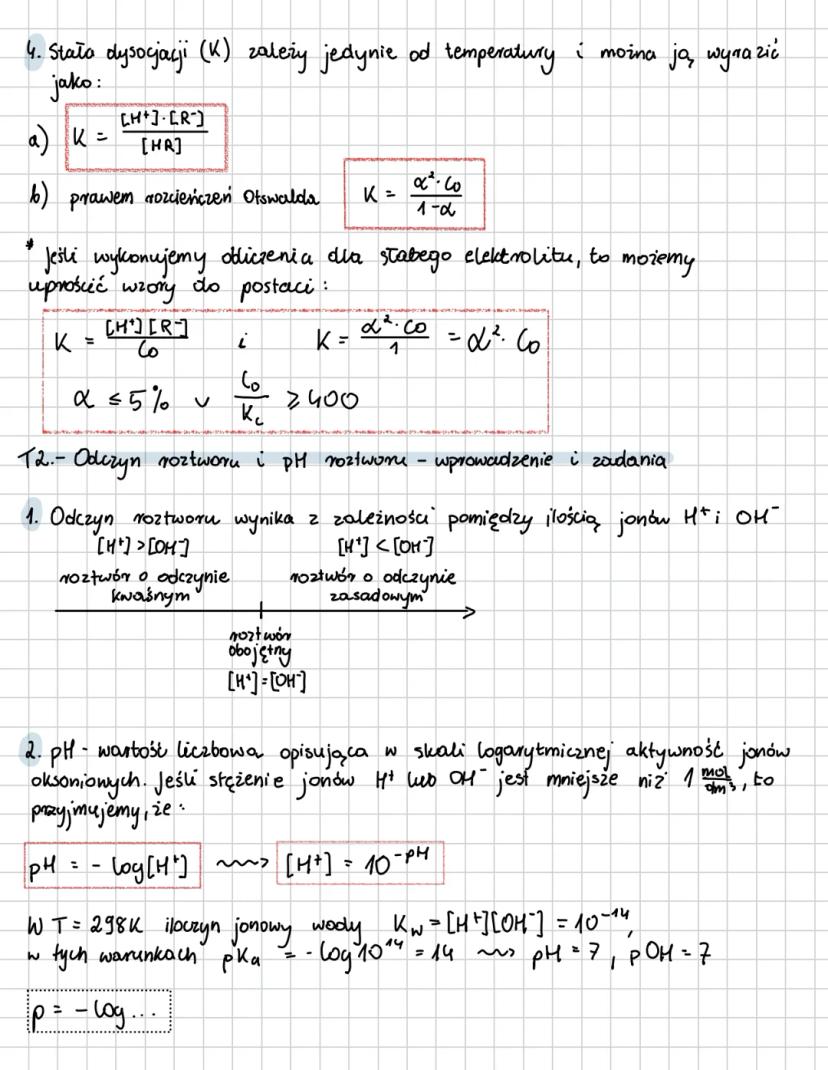 4. Stała dysocjacji (K) zależy jedynie od temperatury i można ją wyrazić
jako:
a) K = [H⁺]·[R⁻] / [HR]
b) prawem rozcieńczeń Otswalda K = α²·C₀ / 1-α
* Jeśli wykonujemy obliczenia dla słabego elektrolitu, to możemy
uprościć wzory do postaci:
K = [H⁺][R⁻] / C₀ i K = α²·C₀ / 1 = α²·C₀
α ≤ 5% ∨ C₀ / K_c ⩾ 400
T2.- Odczyn roztworu i pH roztworu - wprowadzenie i zadania
1. Odczyn roztworu wynika z zależności pomiędzy ilością jonów H⁺ i OH⁻
[H⁺] > [OH⁻] [H⁺] < [OH⁻]
roztwór o odczynie roztwór o odczynie
kwaśnym zasadowym
roztwór
obojętny
[H⁺] = [OH⁻]
2. pH - wartość liczbowa opisująca w skali logarytmicznej aktywność jonów
oksoniowych. Jeśli stężenie jonów H⁺ lub OH⁻ jest mniejsze niż 1 mol/dm³, to
przyjmujemy, że:
pH = - log[H⁺] ⇝ [H⁺] = 10⁻ᵖᴴ
W T = 298K iloczyn jonowy wody K_w = [H⁺][OH⁻] = 10⁻¹⁴,
w tych warunkach pKa = - log 10¹⁴ = 14 ⇝ pH = 7, pOH = 7
p = - log...